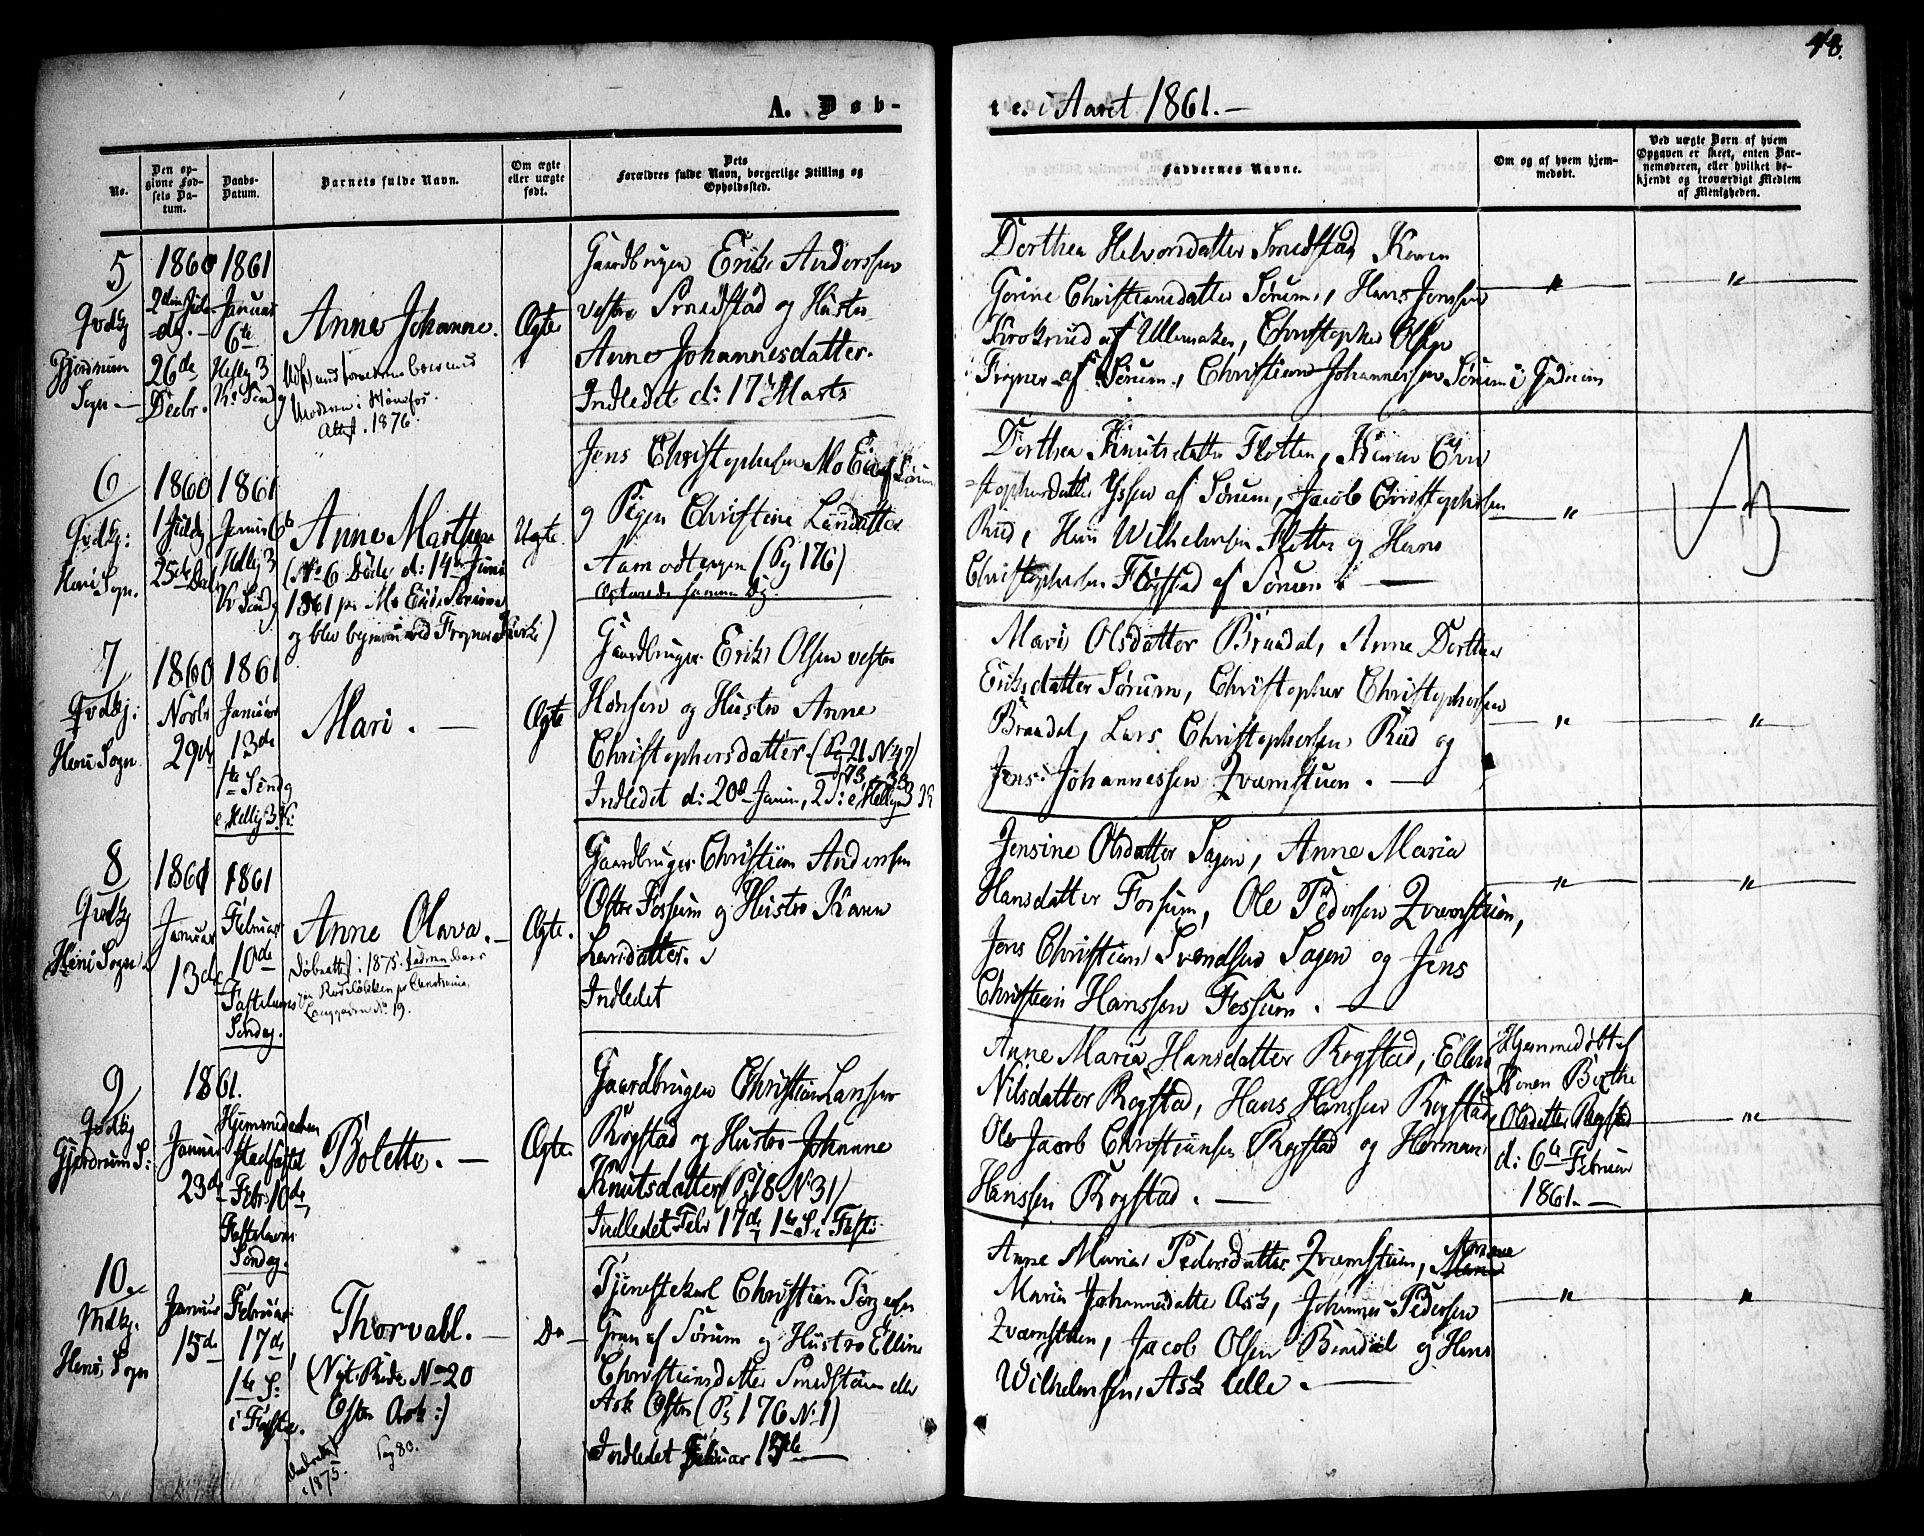 48.
A. Døb-
te. i Aaret 1861.-
No.
Den op-
givne Fød-
sels Da-
tum.
Daabs-
Datum.
Barnets fulde Navn.
Om ægte
eller uægte
født.
Dets
Forældres fulde Navn, borgerlige Stilling og
Opholdssted.
Faddernes Navne.
Om og af hvem hjem-
medøbt.
Ved uægte Børn af hvem
Opgaven er skeet, enten Bar-
nemoderen, eller hvilket be-
kjendt og troværdigt Medlem
af Menigheden.
5
Qvdkj
Gjerdrum
Sogn
1860
26de
Decbr.
1861
Januar
6te
Helligs 3
K. Sønd
Anne Johanne.
Moderen i Hønefos.
Attest. 1876.
Ægte
Gaardbruger Erik Anderssen
vestre Smedstad og Hustro
Anne Johannesdatter.
Indledet d: 17de Marts
Dorthea Helvorsdatter Smedstad, Karen
Gorine Christiansdatter Sørum, Hans Jenssen
Krokrud af Ullensaker, Christopher Olsen
Frogner af Sørum, Christian Johannessen Sørum i Gjerdrum
"
"
6
Qvdkj:
Heni Sogn.
1860
1 Juledg
25de Dec
1861
Januar 6te
Hellig 3
K. Sønd
Anne Marthea
(No 6 Døde, d: 14de Juni
1861 p. Mo Eie Sørum
og blev begravn ved Frogner Kirke)
Uægte.
Jens Christophersen Mo Eie af Sørum
og Pigen Christine Larsdatter
Aamodtengen (Pg 176)
Dorthea Knutsdatter Flotten, Karen Chri
=stophersdatter Yssen af Sørum, Jacob Christophersen
Rud, Hans Wilhelmsen Flotten og Hans
Christophersen Flogstad af Sørum.
"
7
Qvdkj:
Heni Sogn.
1860
Novbr
29de
1861
Januar
13de
1te Sønd
e. Hellig 3 K:
Mari.
Ægte
Gaardbruger Erik Olsen vestre
Hønsen og Hustro Anne
Christophersdatter (Pg 21 No 47)
73, 33
Indledet d: 20de Januar, 2 S: e. Hellig 3 K
Mari Olsdatter Braadal, Anne Dorthea
Eriksdatter Sørum, Christopher Christophersen
Braadal, Lars Christophersen Rud og
Jens Johannessen Qværnstuen.
"
"
8
Qvdkj
Heni Sogn.
1861
Januar
13de
1861
Februar
10de
Fastelavns
Søndag.
Anne Olava.
Døbeattest i 1875.
No 19.
Ægte.
Gaardbruger Christian Anderssen
Østre Fossum og Hustro Karen
Larsdatter.
Indledet
Jensine Olsdatter Sagen, Anne Maria
Hansdatter Fossum, Ole Pedersen Qværnstuen,
Jens Christian Svendsen Sagen og Jens
Christian Hanssen Fossum.
"
"
9
Qvdkj
Gjerdrum S:
1861.
Januar
23de
Hjemmedaaben
Stadfæstet
Febr: 10de
Fastelavns
Søndag.
Bolette.
Ægte.
Gaardbruger Christian Larssen
Rogstad og Hustro Johanne
Knutsdatter (Pg 18 No 31)
Indledet Febr 17de, 1te S. i Faste
Anne Maria Hansdatter Rogstad, Ellen
Nilsdatter Rogstad, Hans Hanssen Rogstad,
Ole Jacob Christiansen Rogstad og Herman
Hanssen Rogstad.
Hjemmedøbt af
Konen Birthe
Olsdatter Rogstad
d: 6te Februar
1861.
"
10.
Mdkj.
Heni Sogn
Januar
15de
Februar
17de
1te S:
i Faste.
Thorvald.
No 20
Østre Ask:)
Pag 80.
i 1875.
Do
Tjenestekarl Christian Torgersen
Gran af Sørum og Hustro Elline
Christiansdatter Smedstuen eller
Ask Østre (Pg 176 No 1)
Indledet Februar
Anne Maria Pedersdatter Qværnstuen, Anne
Maria Johannesdatter Ask, Johannes Pedersen
Qværnstuen, Jacob Olsen Braadal og Hans
Wilhelmsen Ask lille.
"
"